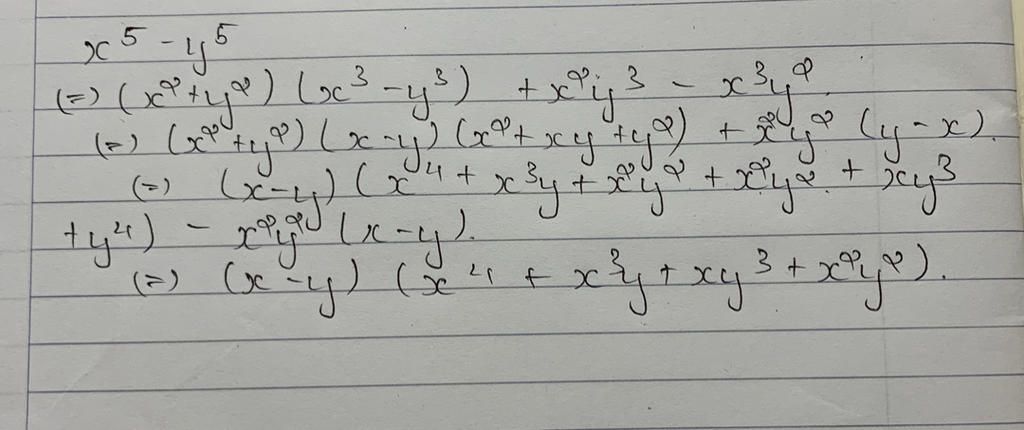 x⁵ - y⁵
(=) (x² + y²) (x³ - y³) + x²y³ - x³y²
(=) (x² + y²) (x - y) (x² + xy + y²) + x²y² (y - x).
(=) (x - y) (x⁴ + x³y + x²y² + x²y² + xy³
+ y⁴) - x²y² (x - y).
(=) (x - y) (x⁴ + x³y + xy³ + x²y²).